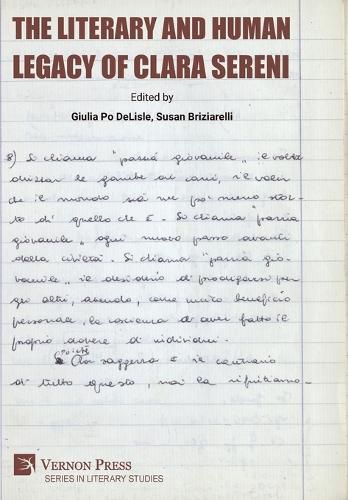 THE LITERARY AND HUMAN
LEGACY OF CLARA SERENI
Edited by
Giulia Po DeLisle, Susan Briziarelli
8) Si chiama "pazzia giovanile" il voler
drizzar le gambe ai cani, il voler
che il mondo sia un po' meno stor-
to di quello che è. Si chiama "pazzia
giovanile" ogni nuovo passo avanti
della civiltà. Si chiama "pazzia gio-
vanile" il desiderio di prodigarsi per
gli altri, avendo, come unico beneficio
personale, la coscienza di aver fatto il
proprio dovere di individui.
poichè
la saggezza è il contrario
di tutto questo, noi la rifiutiamo-
VERNON PRESS
SERIES IN LITERARY STUDIES